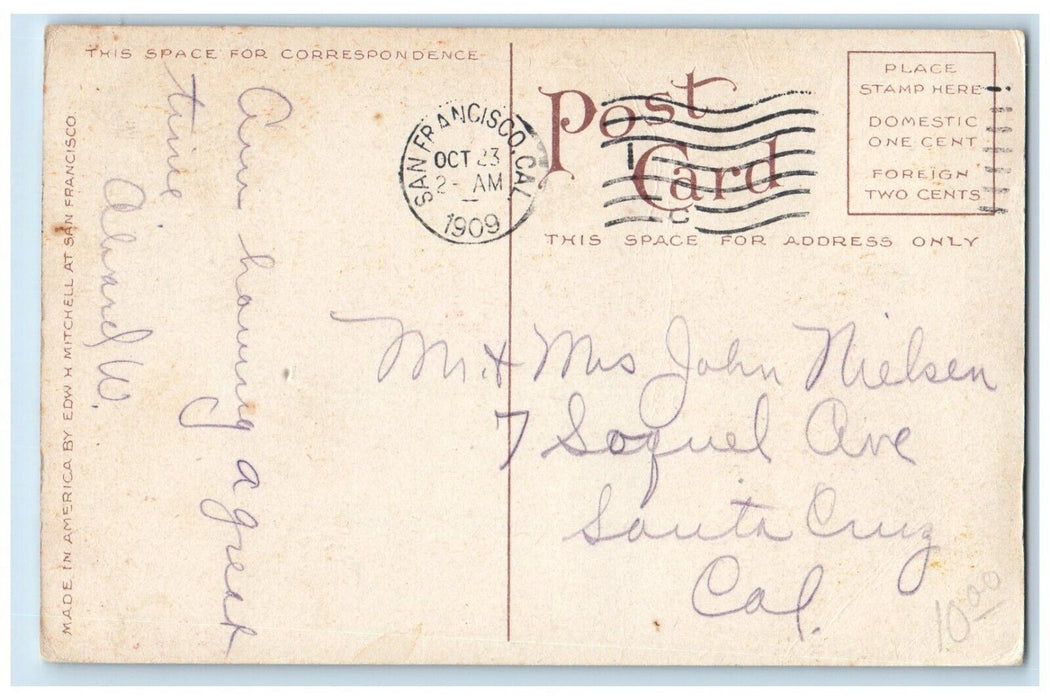 THIS SPACE FOR CORRESPONDENCE
Post
Card
PLACE
STAMP HERE
DOMESTIC
ONE CENT
FOREIGN
TWO CENTS
SAN FRANCISCO, CAL.
OCT 23
2- AM
1909
THIS SPACE FOR ADDRESS ONLY
Am having a great
time
W.
Mr. & Mrs John Nielsen
7 Soquel Ave
Santa Cruz
Cal.
10.00
MADE IN AMERICA BY EDW H MITCHELL AT SAN FRANCISCO